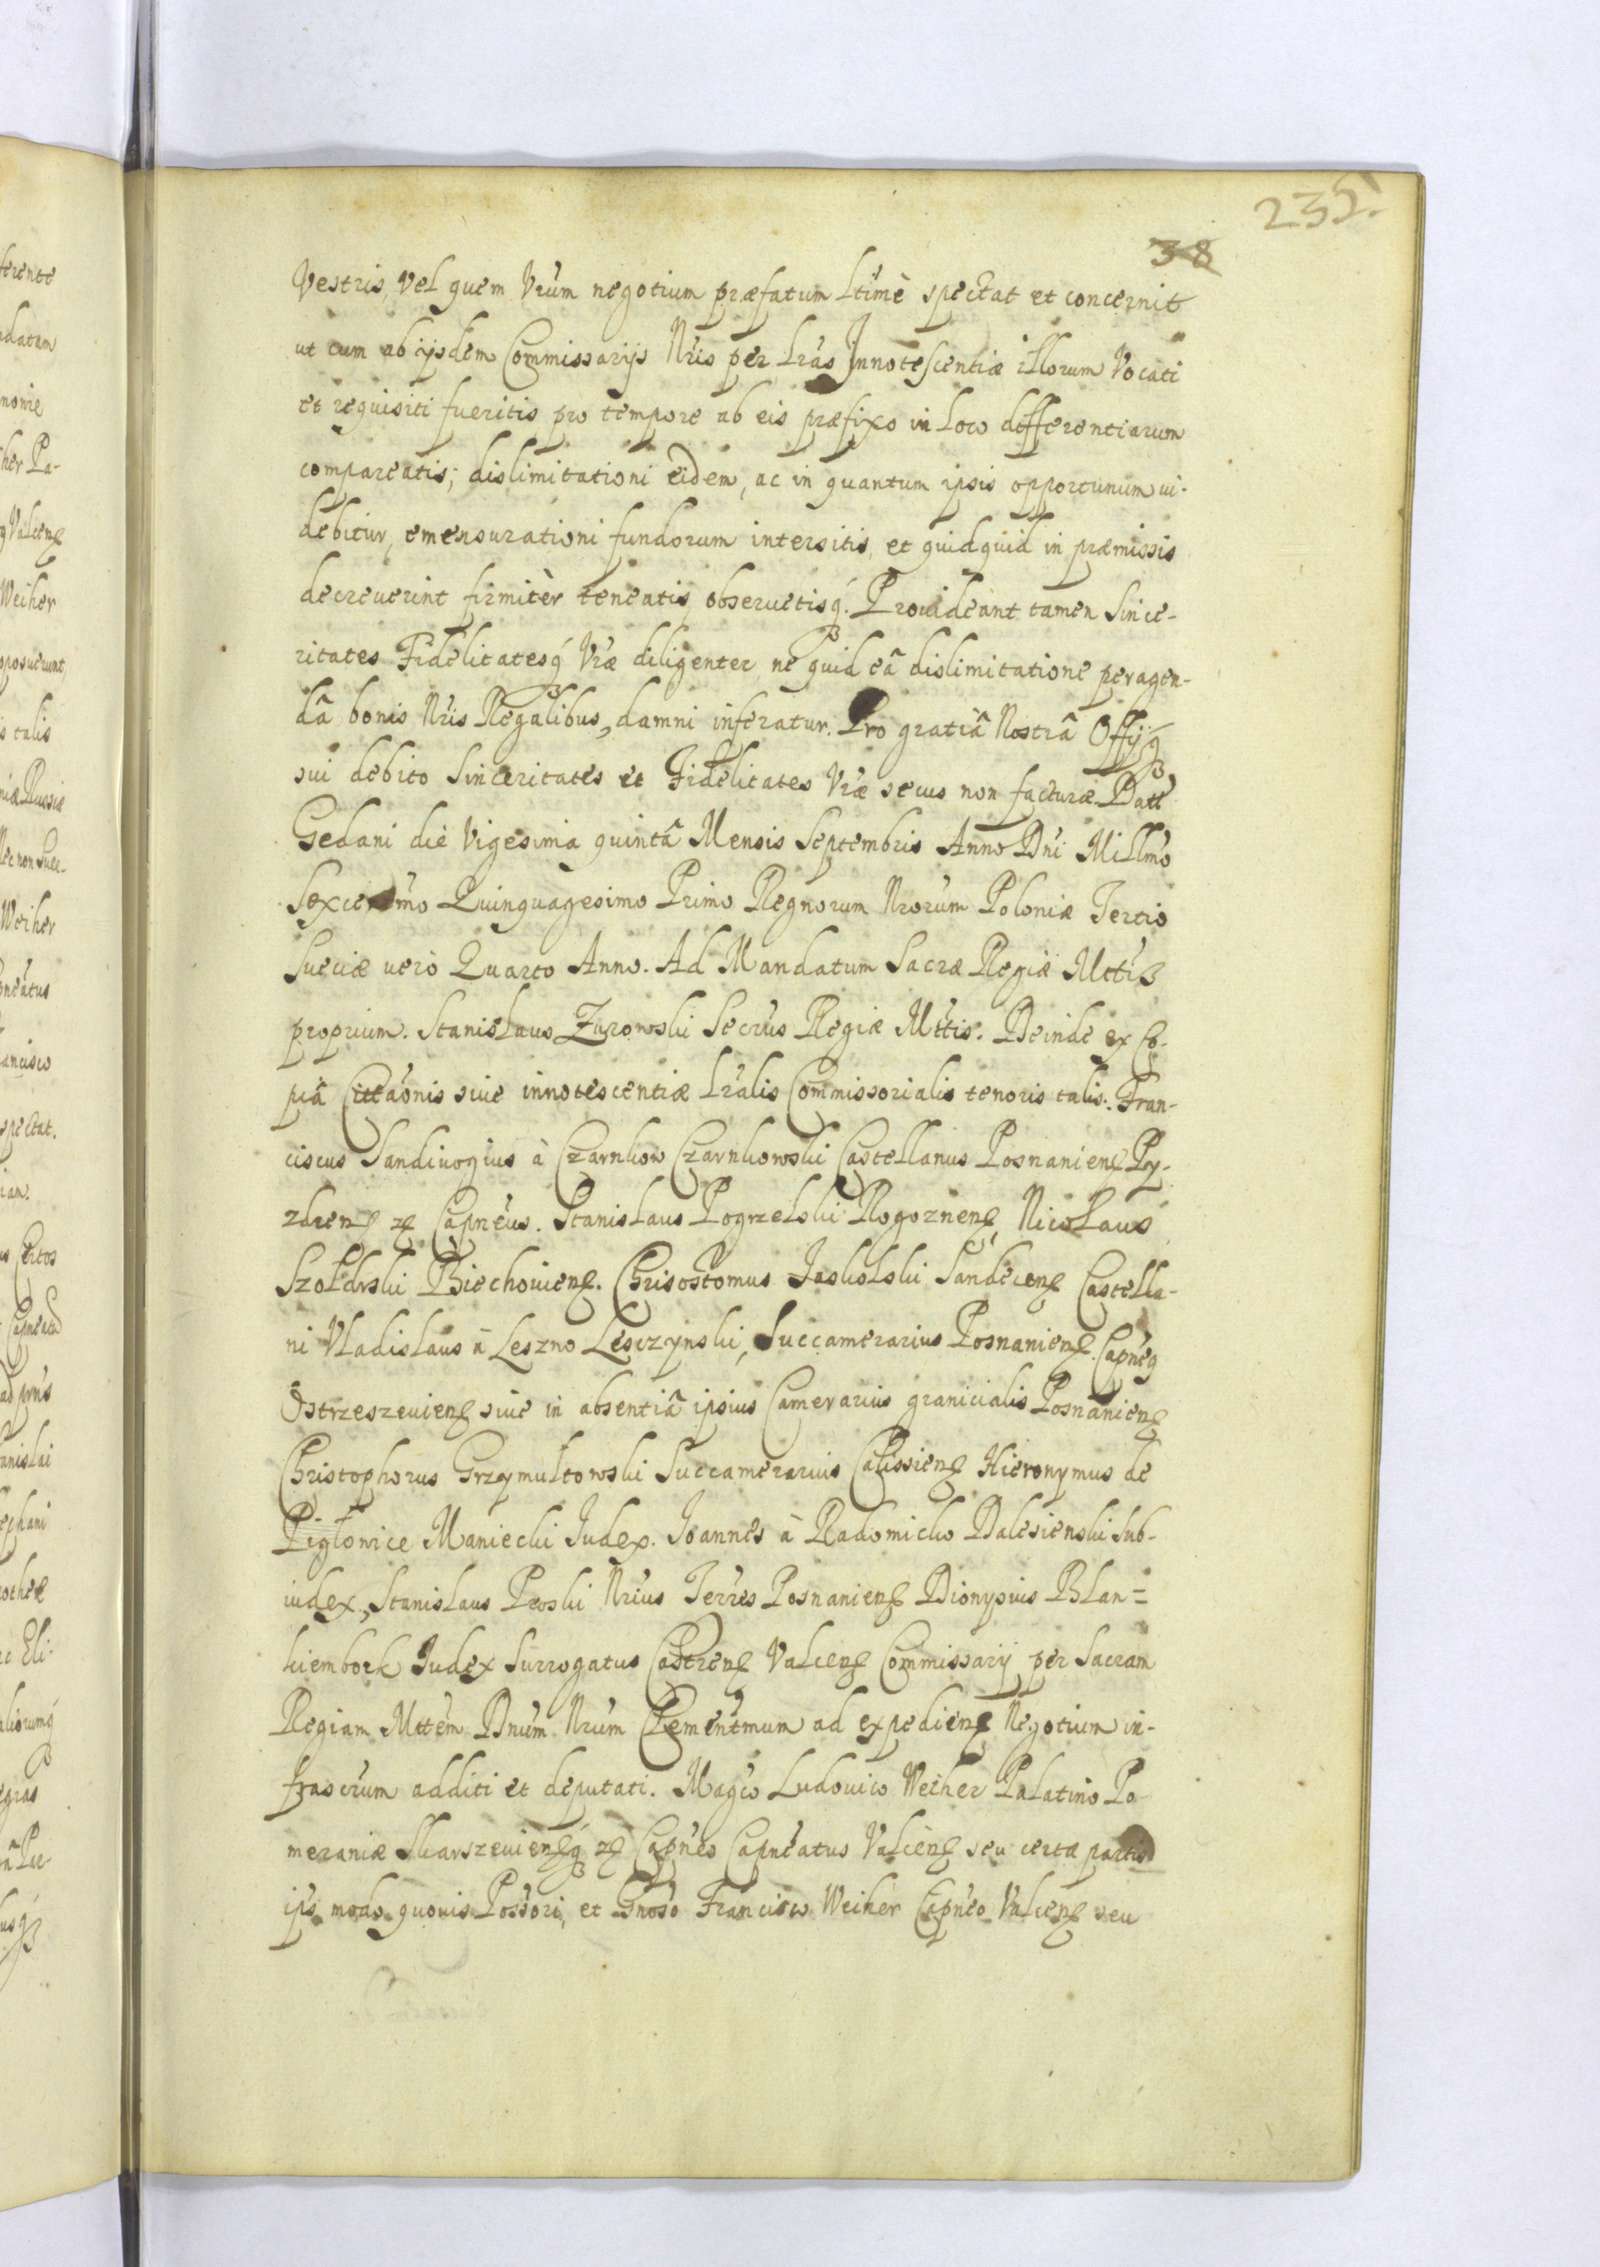 235.
38
Vestris, Vel quem Vrũm negotium præfatum Ltimè spectat et concernit
ut cum ab ijsdem Commissarijs Nris per Lras Innotescentiæ illorum Vocati
et requisiti fueritis pro tempore ab eis præfixo in loco differentiarum
compareatis; dislimitationi eidem, ac in quantum ipsis opportunum vi-
debitur, emensurationi fundorum intersitis, et quidquid in præmissis
decreuerint firmitèr teneatis, obseruetisq́. Prouideant tamen Since-
ritates Fidelitatesq́ Vræ diligenter, ne quid eâ dislimitatione peragen-
dâ bonis Nris Regalibus, damni inferatur. Pro gratiâ Nostrâ Offijq
sui debito Sinceritates et Fidelitates Vræ secus non facturæ. Datt
Gedani die Vigesima quintâ Mensis Septembris Anno Dni Millmo
Sexcentmo Quinquagesimo Primo Regnorum Nrorum Poloniæ Tertio
Sueciæ uerò Quarto Anno. Ad Mandatum Sacræ Regiæ Mttis
proprium. Stanislaus Zurowski Secrus Regiæ Mttis. Deinde ex Co-
piâ Cittaonis siue innotescentiæ Lralis Commissorialis tenoris talis. Fran-
ciscus Sandiuogius à Czarnkow Czarnkowski Castellanus Posnanien Py-
zdren etc Capneus. Stanislaus Pogrzelski Rogoznen, Nicolaus
Szołdrski Biechouien. Chrisostomus Jaskolski Sandecen Castella-
ni Vladislaus à Leszno Lesczynski, Succamerarius Posnanien. Capneq
Ostrzeszeuien siue in absentiâ ipsius Camerarius granicialis Posnanien
Christophorus Grzymułtowski Succamerarius Calissien Hieronymus de
Piglowice Maniecki Judex. Joannes à Radomicko Dalesienski Sub-
iudex, Stanislaus Proski Nrius Terres Posnanien Dionysius Blan=
kiembork Judex Surrogatus Castren Valcen Commissarij per Sacram
Regiam Mttem Dnum Nrum Clementmum ad expedien Negotium in-
frascrum additi et deputati. Magco Ludouico Weiher Palatino Po-
meraniæ Skarszeuienq́ etc Capneo Capneatus Valcen seu certæ partis
ips modo quouis Possori, et Gnoso Francisco Weiher Capneo Valcen seu